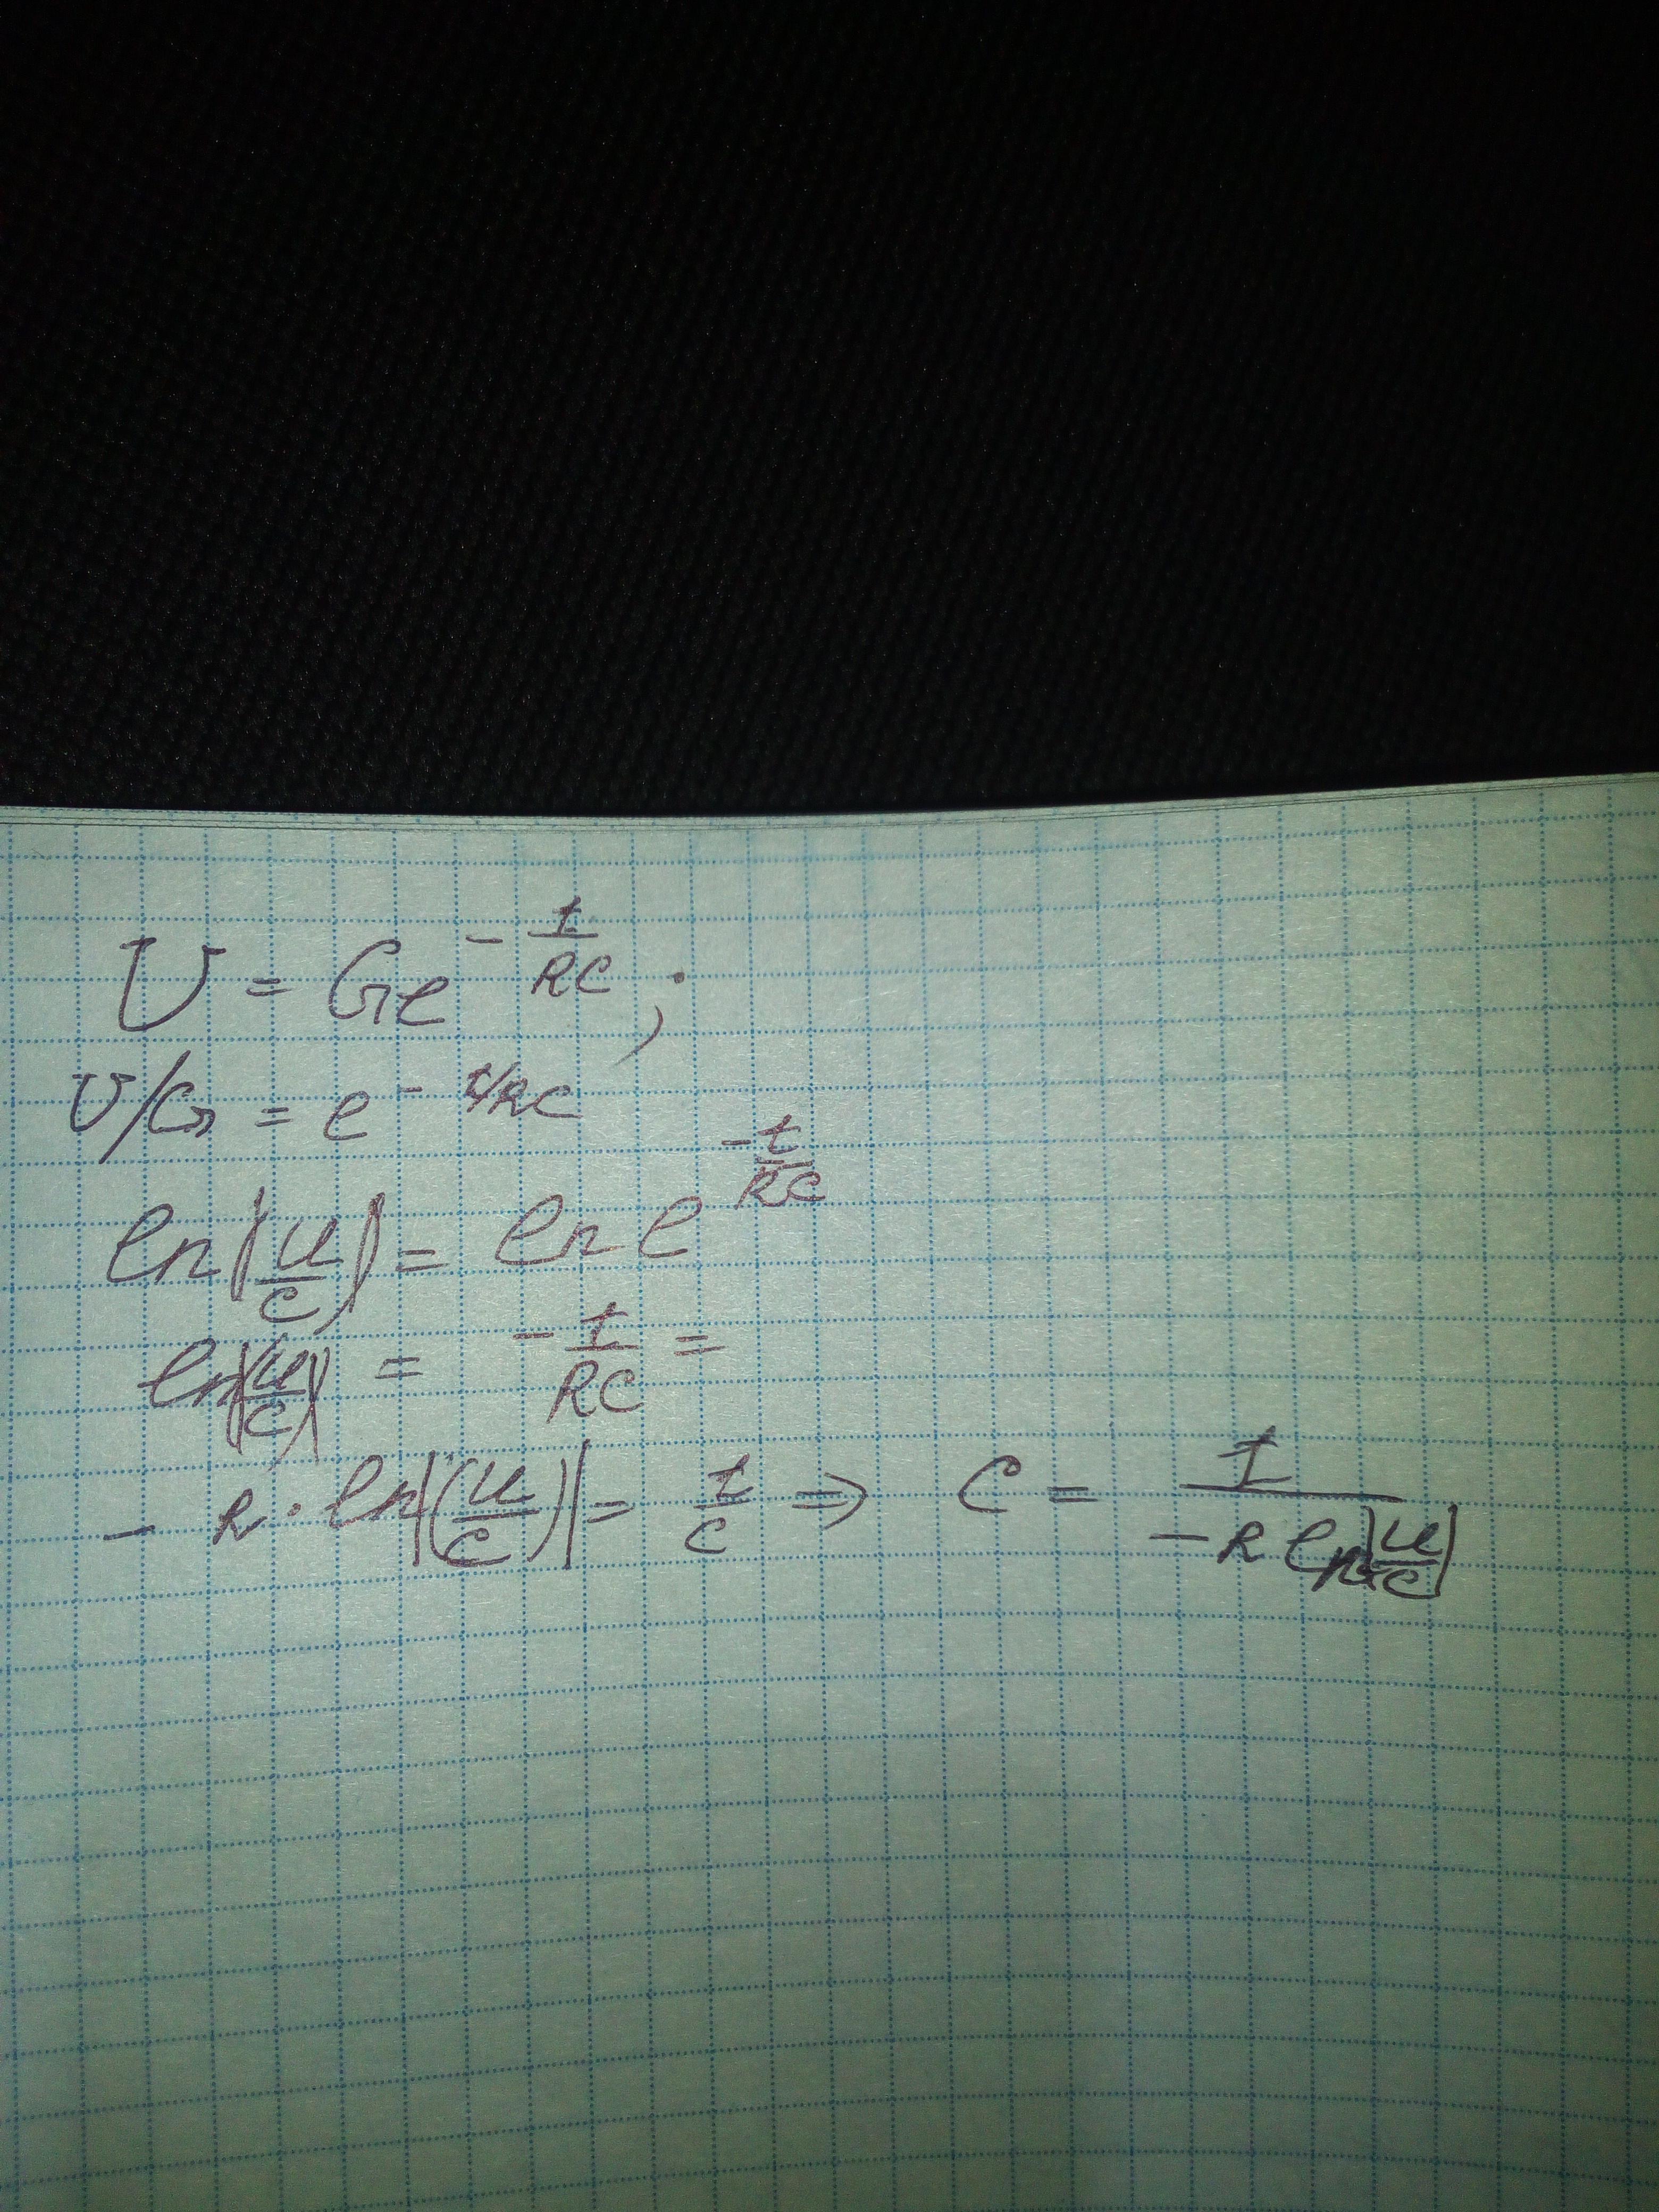 U = Ge^{-\frac{t}{RC}};
U/G = e^{-t/RC}
ln|\frac{u}{c}| = ln e^{-\frac{t}{RC}}
ln|(\frac{u}{c})| = -\frac{t}{RC} =
- R · ln|(\frac{u}{c})| = \frac{t}{c} ⇒ C = \frac{t}{-R ln|\frac{u}{c}|}